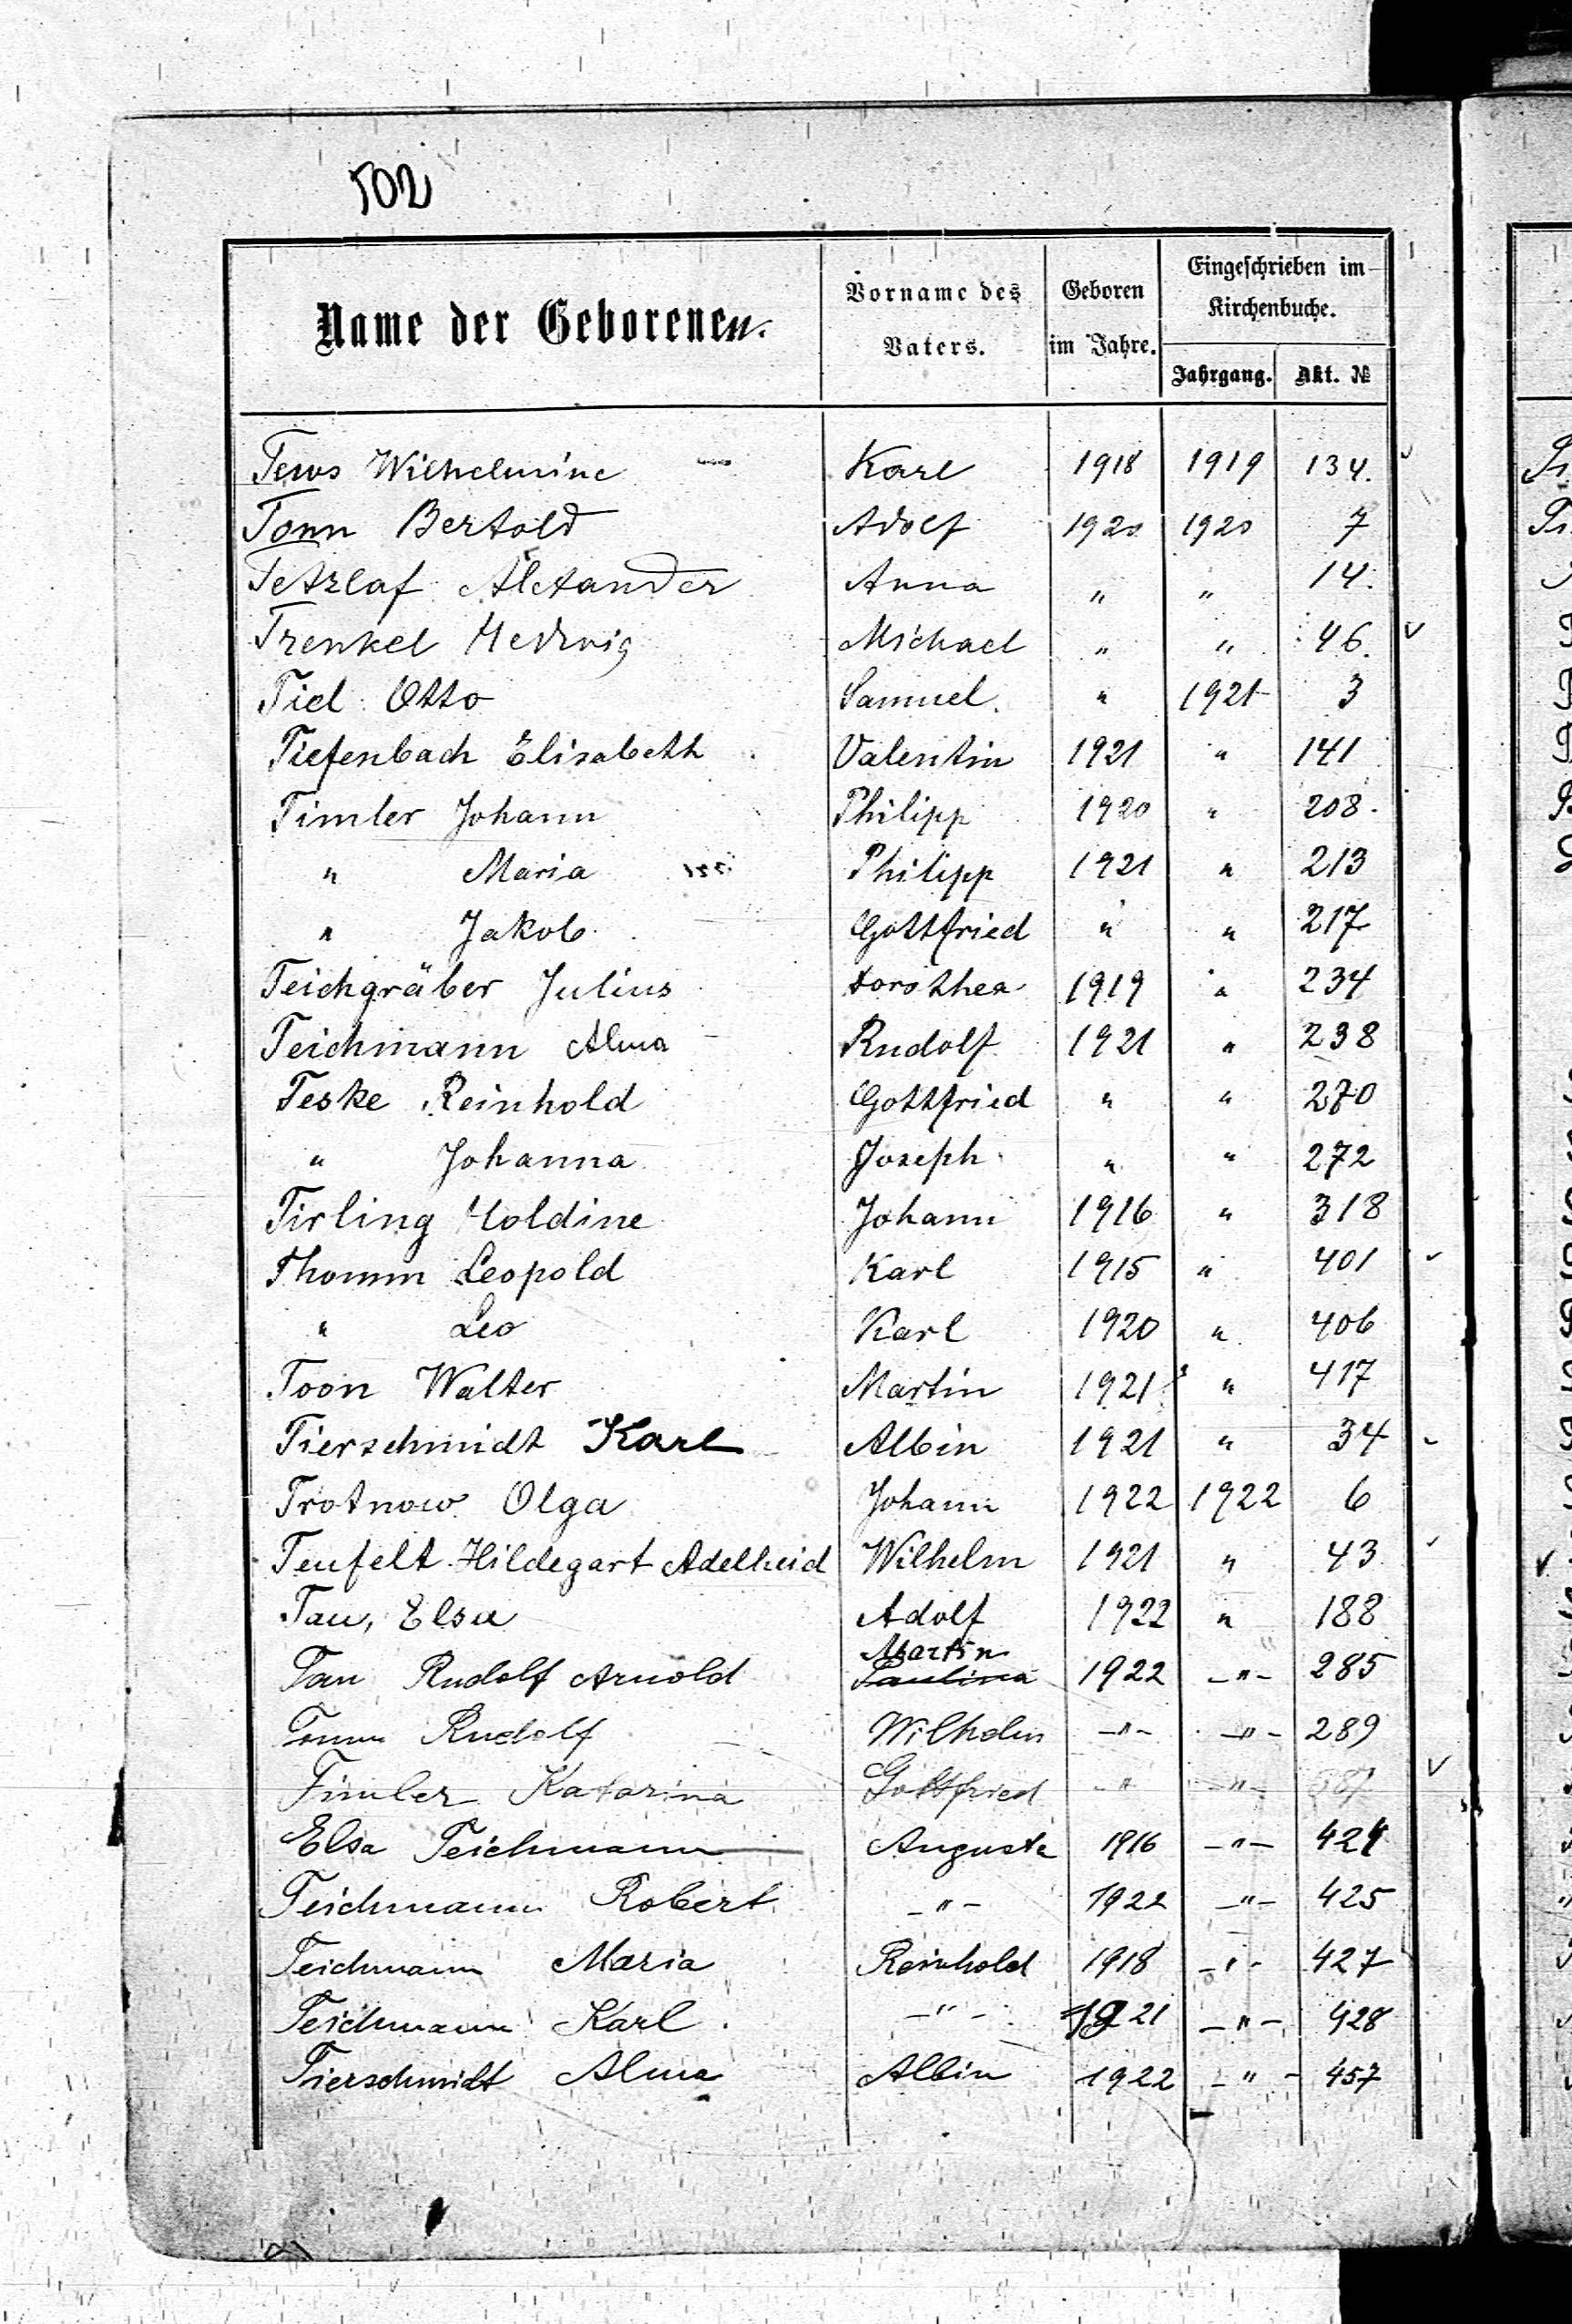 502
Name der Geborenen. Vorname des Vaters. Geboren im Jahre. Eingeschrieben im Kirchenbuche. Jahrgang. Akt. №
Tews Wilhelmine Karl 1918 1919 134.
Tonn Bertold Adolf 1920 1920 7
Tetzlaf Alexander Anna " " 14.
Trenkel Hedwig Michael " " 46.
Tiel Otto Samuel. " 1921 3
Tiefenbach Elisabeth Valentin 1921 " 141
Timler Johann Philipp 1920 " 208.
" Maria Philipp 1921 " 213
" Jakob Gottfried " " 217
Teichgräber Julius Dorothea 1919 " 234
Teichmann Alma Rudolf 1921 " 238
Teske Reinhold Gottfried " " 270
" Johanna Joseph " " 272
Tirling Holdine Johann 1916 " 318
Thomm Leopold Karl 1915 " 401
" Leo Karl 1920 " 406
Toon Walter Martin 1921 " 417
Tierschmidt Karl Albin 1921 " 34
Trotnow Olga Johann 1922 1922 6
Teufelt Hildegart Adelheid Wilhelm 1921 " 43
Tau, Elsa Adolf 1922 " 188
Martin
Tau Rudolf Arnold Paulina 1922 -"- 285
Tomm Rudolf Wilhelm -"- -"- 289
Timler Katarina Gottfried -"- -"-
Elsa Teichmann Auguste 1916 -"- 424
Teichmann Robert -"- 1922 -"- 425
Teichmann Maria Reinhold 1918 -"- 427
Teichmann Karl. -"- 1921 -"- 428
Tierschmidt Alma Albin 1922 -"- 457